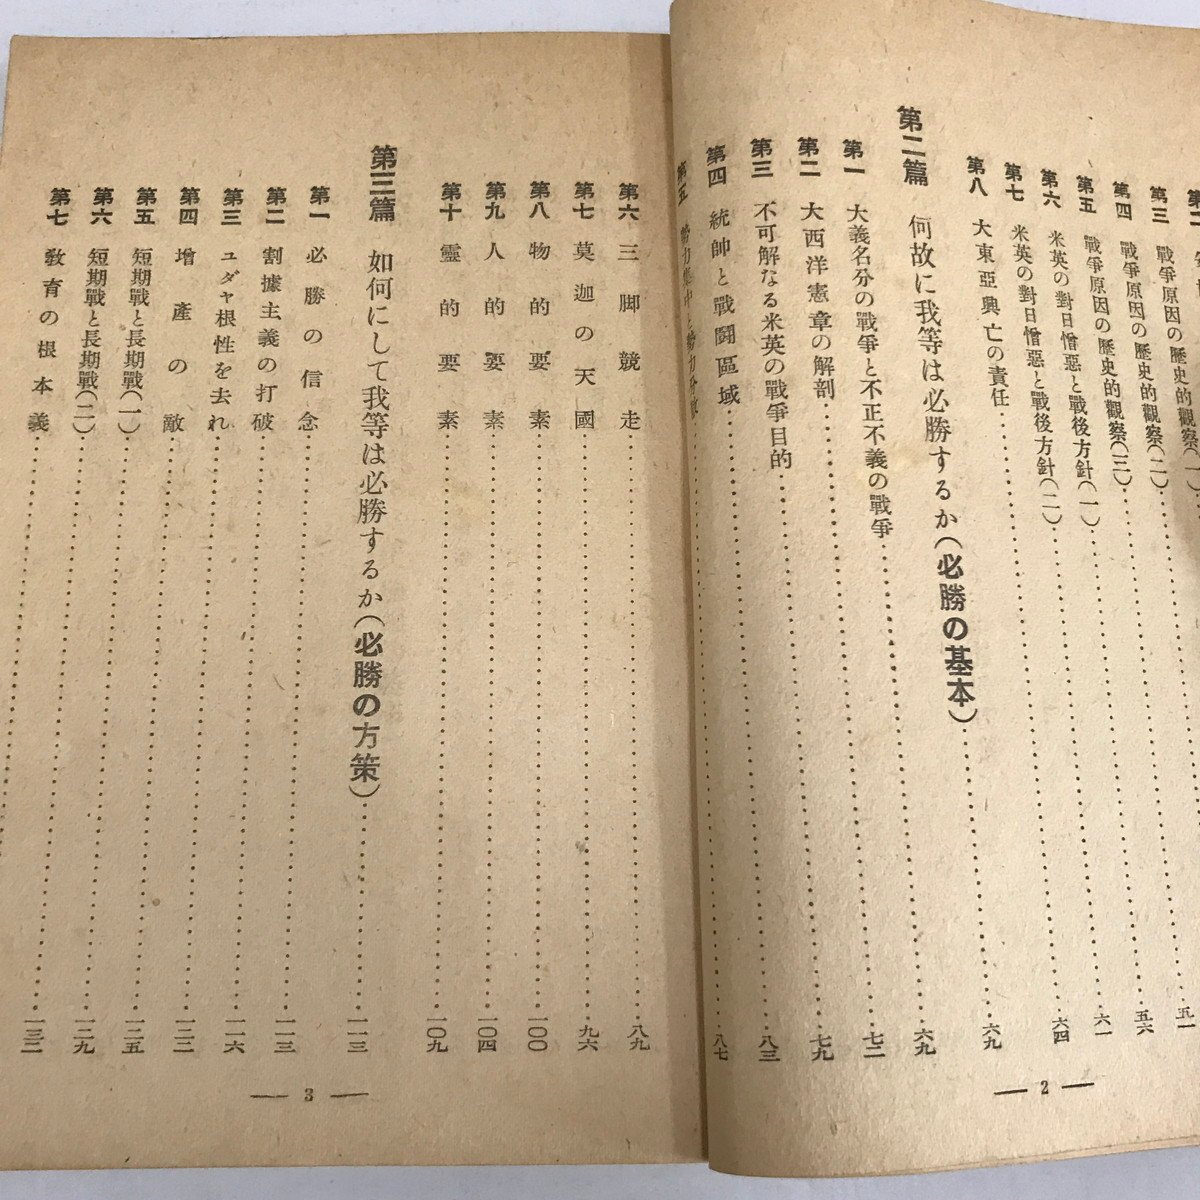 第三 戰爭原因の歷史的觀察(二)……五一
第四 戰爭原因の歷史的觀察(三)……五六
第五 米英の對日憎惡と戰後方針(一)……六一
第六 米英の對日憎惡と戰後方針(二)……六四
第七 大東亞興亡の責任……六九
第八
第二篇 何故に我等は必勝するか(必勝の基本)……六九
第一 大義名分の戰爭と不正不義の戰爭……七二
第二 大西洋憲章の解剖……七九
第三 不可解なる米英の戰爭目的……八三
第四 統帥と戰鬪區域……八七
第五
— 2 —
第六 三脚競走……八九
第七 莫迦の天國……九六
第八 物的要素……一〇〇
第九 人的要素……一〇四
第十 靈的要素……一〇九
第三篇 如何にして我等は必勝するか(必勝の方策)……一一三
第一 必勝の信念……一一三
第二 割據主義の打破……一一六
第三 ユダヤ根性を去れ……一二二
第四 增產の敵……一二五
第五 短期戰と長期戰(一)……一二九
第六 短期戰と長期戰(二)……一三二
第七 敎育の根本義
— 3 —